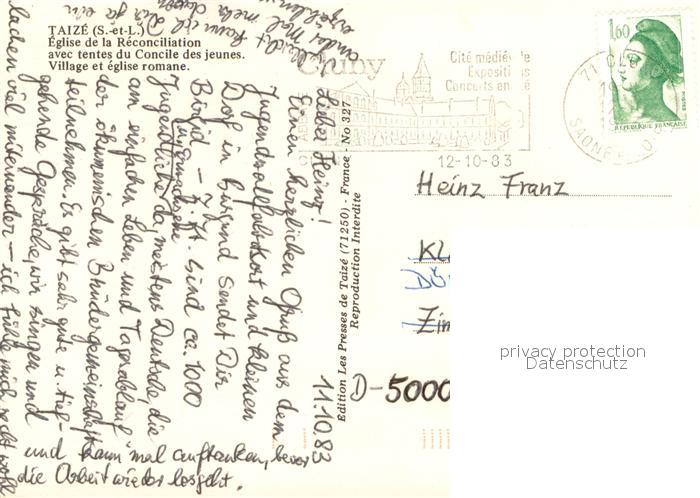 TAIZÉ (S.-et-L.)
Église de la Réconciliation
avec tentes du Concile des jeunes.
Village et église romane.
11.10.83
Lieber Heinz!
Einen herzlichen Gruß aus dem
Jugendwallfahrtsort und kleinen
Dorf in Burgund sendet Dir
Birgid – z. Zt. sind ca. 1000
Jugendliche da, meistens Deutsche, die
am einfachen Leben und Tagesablauf
der ökumenischen Brüdergemeinschaft
teilnehmen. Es gibt sehr gute u. tief-
gehende Gespräche, wir singen und
lachen viel miteinander – ich fühle mich recht wohl
und kann mal auftanken, bevor
die Arbeit wieder losgeht.
Vielleicht kann ich Dir ja ein
ander Mal mehr davon
erzählen
Edition Les Presses de Taizé (71250) - France - No 327
Reproduction Interdite
Cluny
Cité médiévale
Expositions
Concerts en été
12-10-83
71 CLUNY
SAONE
1,60
REPUBLIQUE FRANÇAISE
Heinz Franz
D-5000
privacy protection
Datenschutz